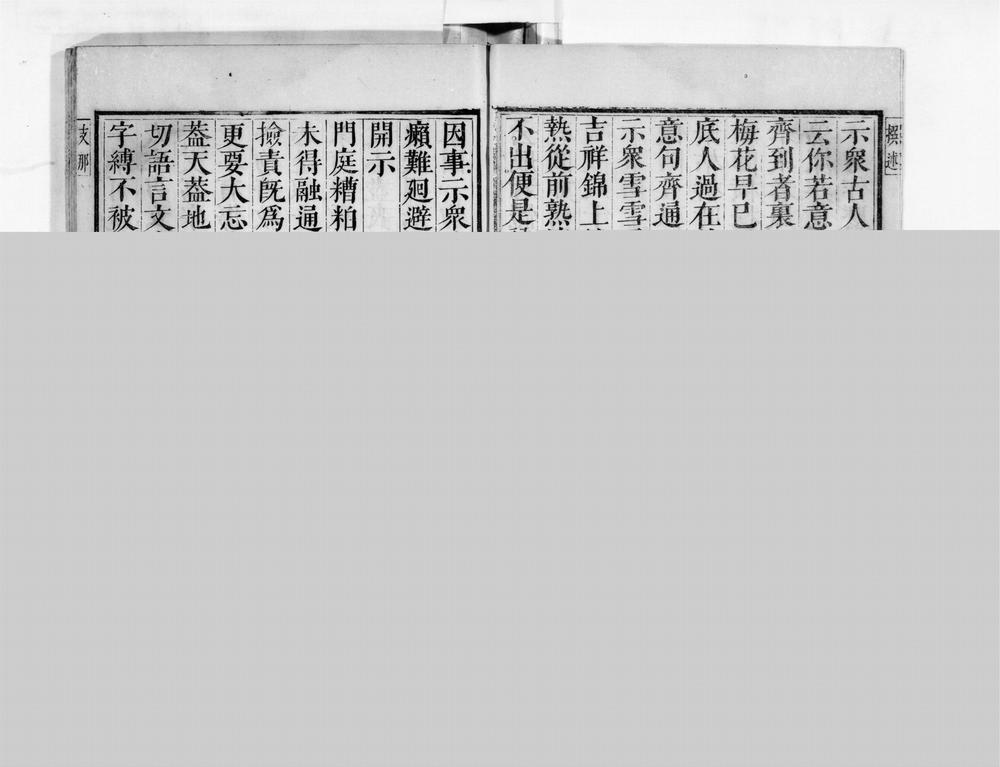 撰述
示衆古人
云你若意
齊到者裏
梅花早已
底人過在
意句齊通
示衆雪雪
吉祥錦上
熱從前熟
不出便是
因事示衆
癩難廻避
開示
門庭糟粕
未得融通
撿責旣爲
更要大忘
葢天葢地
切語言文
字縛不被
支那